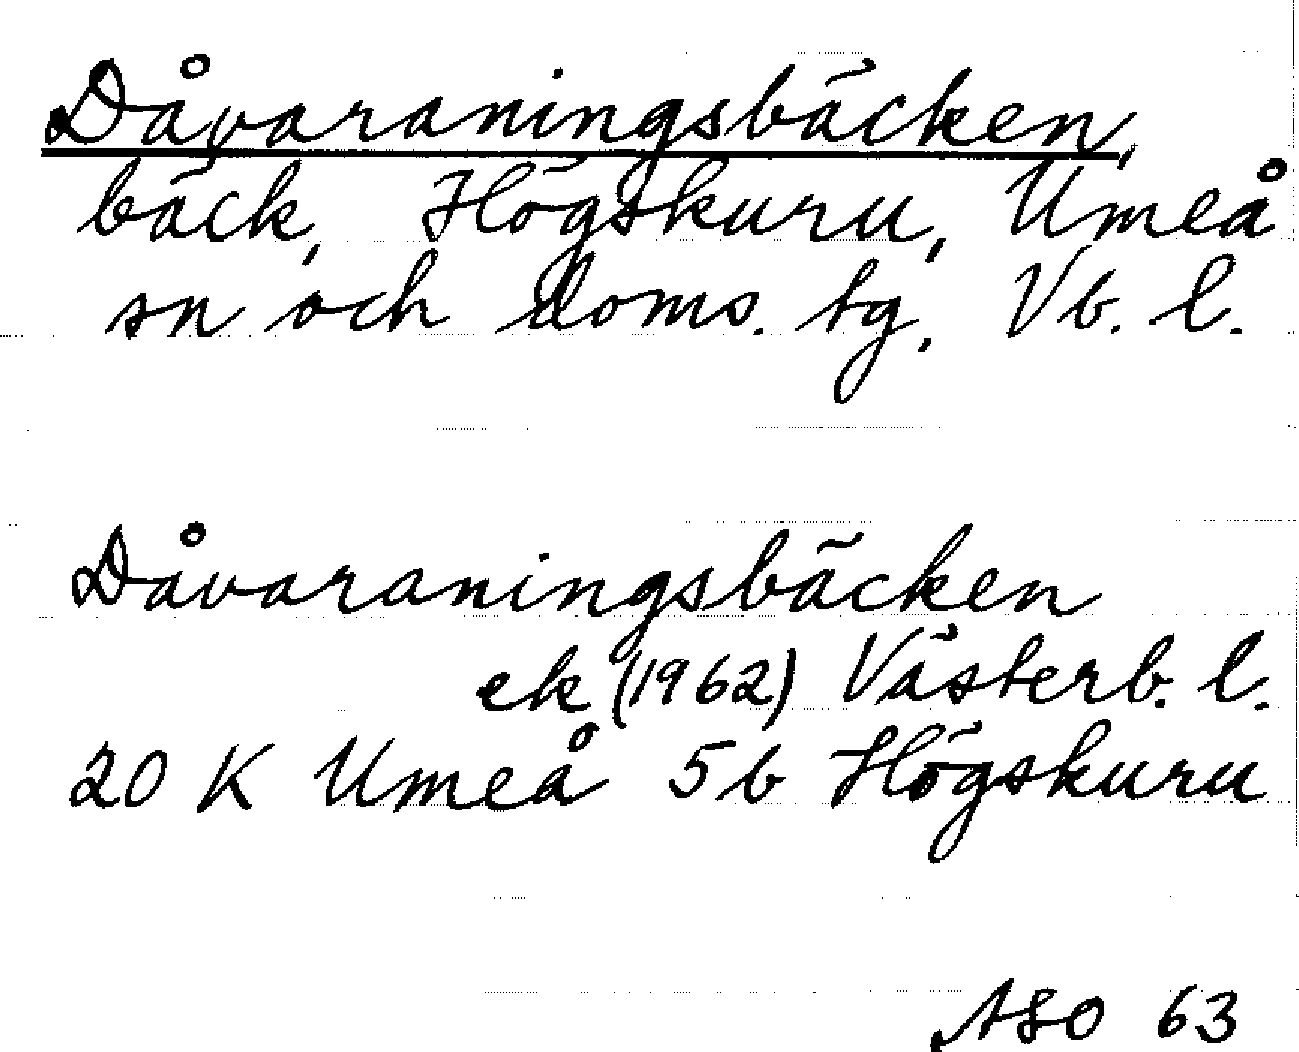 Dåvaraningsbäcken,
bäck, Högskuru, Umeå
sn och doms. tg, Vb. l.
Dåvaraningsbäcken
ek (1962) Västerb. l.
20 K Umeå 5b Högskuru
ASO 63